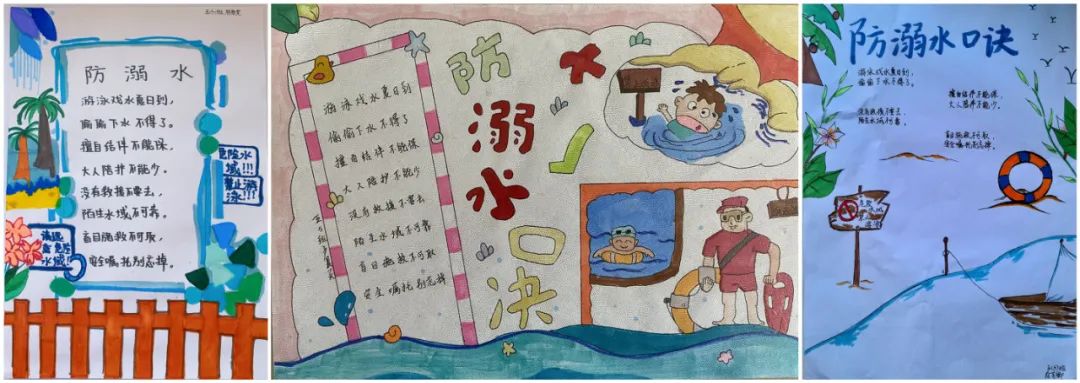 防 溺 水
游泳戏水夏日到，
偷偷下水不得了。
擅自结伴不能保，
大人陪护不能少。
没有救援不要去，
陌生水域不可靠。
盲目施救不可取，
安全嘱托别忘掉。
危险水
域!!!
禁止游
泳!!!
水域
防溺水口决
游泳戏水夏日到
偷偷下水不得了
擅自结伴不能保
大人陪护不能少
没有救援不要去
陌生水域不可靠
盲目施救不可取
安全嘱托别忘掉
防溺水口诀
游泳戏水夏日到，
偷偷下水不得了。
擅自结伴不能保，
大人陪护不能少。
没有救援不要去，
陌生水域不可靠。
盲目施救不可取，
安全嘱托别忘掉。